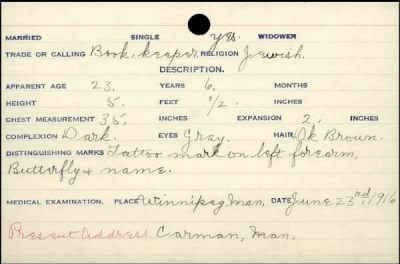 MARRIED SINGLE yes. WIDOWER
TRADE OR CALLING Book-keeper RELIGION Jewish.
DESCRIPTION.
APPARENT AGE 23. YEARS 6. MONTHS
HEIGHT 5. FEET 1/2. INCHES
CHEST MEASUREMENT 35. INCHES EXPANSION 2. INCHES
COMPLEXION Dark. EYES Gray. HAIR Dk Brown.
DISTINGUISHING MARKS Tattoo mark on left forearm,
Butterfly & name.
MEDICAL EXAMINATION. PLACE Winnipeg, Man. DATE June 23rd 1916
Present Address. Carman, Man.